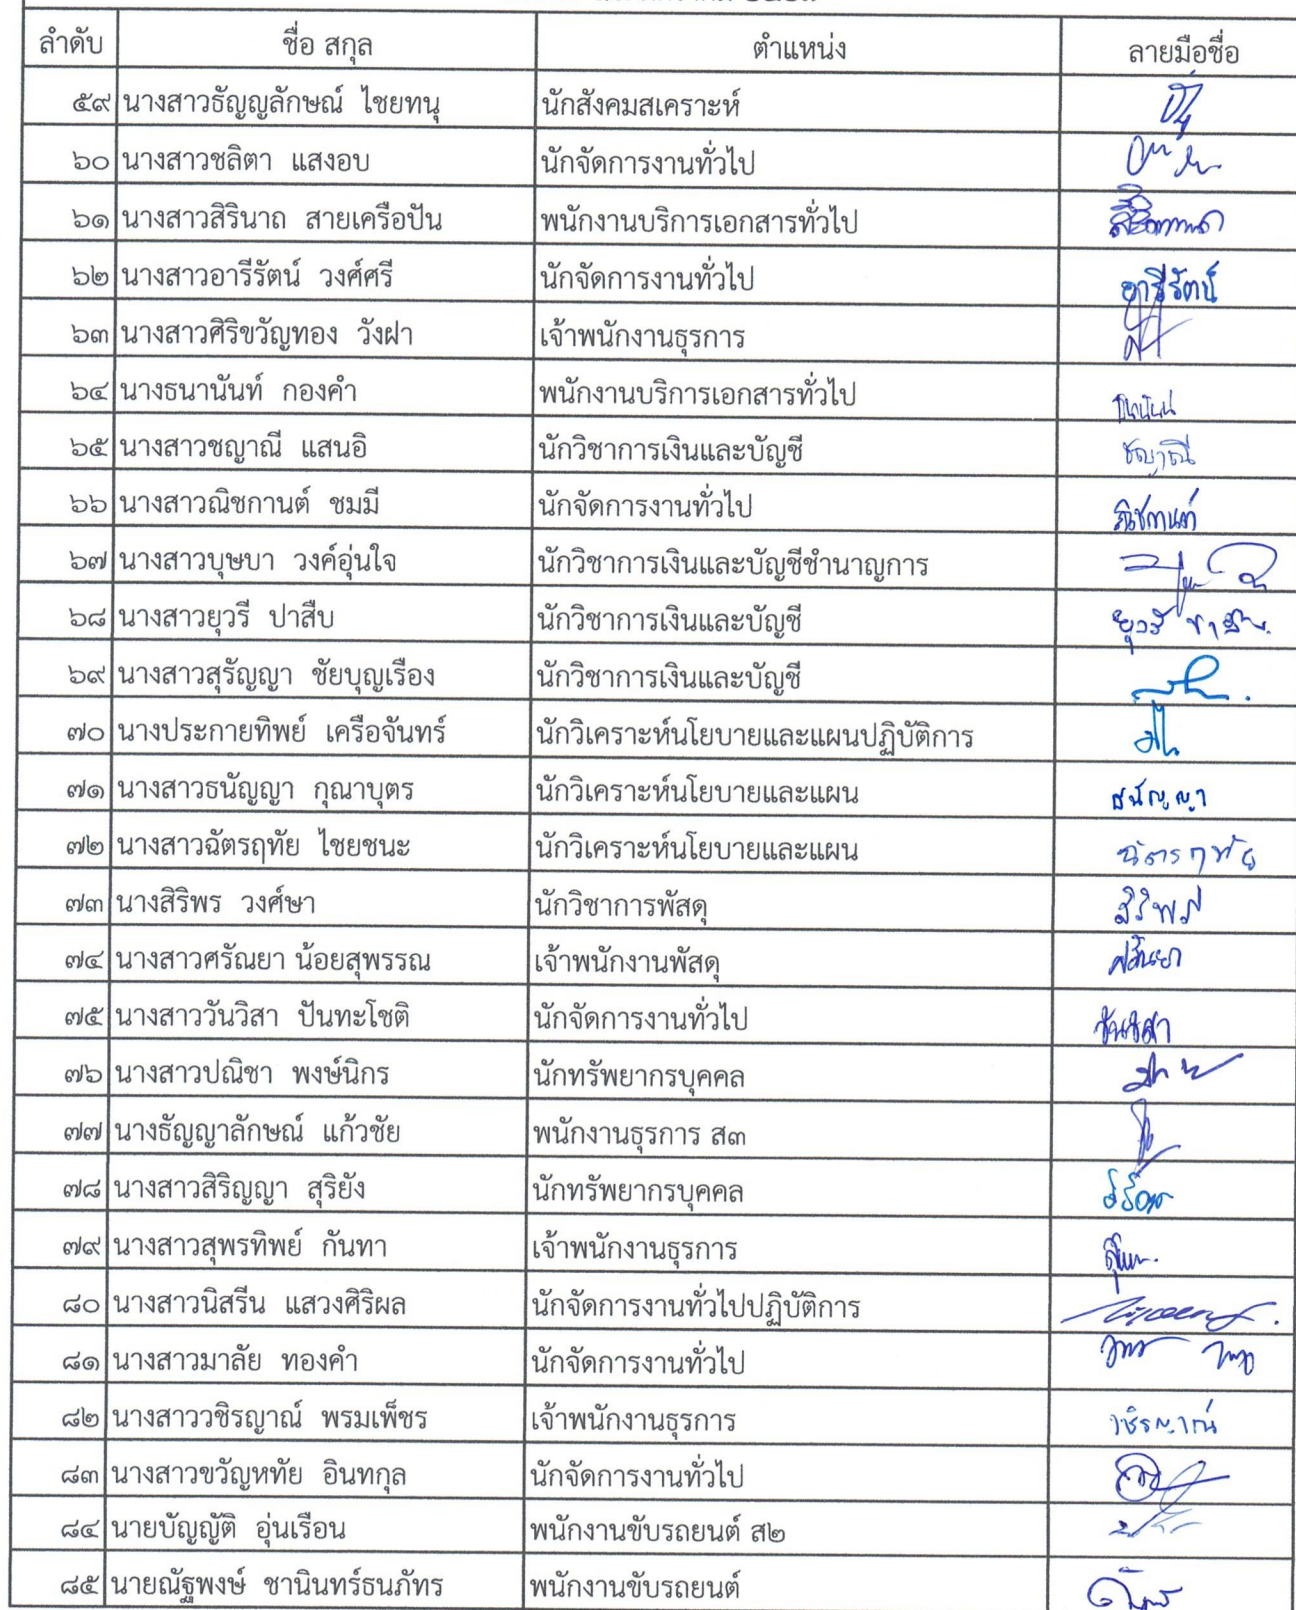 ลำดับ ชื่อ สกุล ตำแหน่ง ลายมือชื่อ
๕๙ นางสาวธัญญลักษณ์ ไชยทนุ นักสังคมสเคราะห์
๖๐ นางสาวชลิตา แสงอบ นักจัดการงานทั่วไป
๖๑ นางสาวสิรินาถ สายเครือปัน พนักงานบริการเอกสารทั่วไป
๖๒ นางสาวอารีรัตน์ วงศ์ศรี นักจัดการงานทั่วไป อารีรัตน์
๖๓ นางสาวศิริขวัญทอง วังฝา เจ้าพนักงานธุรการ
๖๔ นางธนานันท์ กองคำ พนักงานบริการเอกสารทั่วไป
๖๕ นางสาวชญาณี แสนอิ นักวิชาการเงินและบัญชี ชญาณี
๖๖ นางสาวณิชกานต์ ชมมี นักจัดการงานทั่วไป ณิชกานต์
๖๗ นางสาวบุษบา วงค์อุ่นใจ นักวิชาการเงินและบัญชีชำนาญการ
๖๘ นางสาวยุวรี ปาสืบ นักวิชาการเงินและบัญชี ยุวรี ปาสืบ
๖๙ นางสาวสุรัญญา ชัยบุญเรือง นักวิชาการเงินและบัญชี
๗๐ นางประกายทิพย์ เครือจันทร์ นักวิเคราะห์นโยบายและแผนปฏิบัติการ
๗๑ นางสาวธนัญญา กุณาบุตร นักวิเคราะห์นโยบายและแผน ธนัญญา
๗๒ นางสาวฉัตรฤทัย ไชยชนะ นักวิเคราะห์นโยบายและแผน ฉัตรฤทัย
๗๓ นางสิริพร วงศ์ษา นักวิชาการพัสดุ สิริพร
๗๔ นางสาวศรัณยา น้อยสุพรรณ เจ้าพนักงานพัสดุ ศรัณยา
๗๕ นางสาววันวิสา ปันทะโชติ นักจัดการงานทั่วไป วันวิสา
๗๖ นางสาวปณิชา พงษ์นิกร นักทรัพยากรบุคคล
๗๗ นางธัญญาลักษณ์ แก้วชัย พนักงานธุรการ ส๓
๗๘ นางสาวสิริญญา สุริยัง นักทรัพยากรบุคคล
๗๙ นางสาวสุพรทิพย์ กันทา เจ้าพนักงานธุรการ
๘๐ นางสาวนิสรีน แสวงศิริผล นักจัดการงานทั่วไปปฏิบัติการ
๘๑ นางสาวมาลัย ทองคำ นักจัดการงานทั่วไป
๘๒ นางสาววชิรญาณ์ พรมเพ็ชร เจ้าพนักงานธุรการ วชิรญาณ์
๘๓ นางสาวขวัญหทัย อินทกุล นักจัดการงานทั่วไป
๘๔ นายบัญญัติ อุ่นเรือน พนักงานขับรถยนต์ ส๒
๘๕ นายณัฐพงษ์ ชานินทร์ธนภัทร พนักงานขับรถยนต์